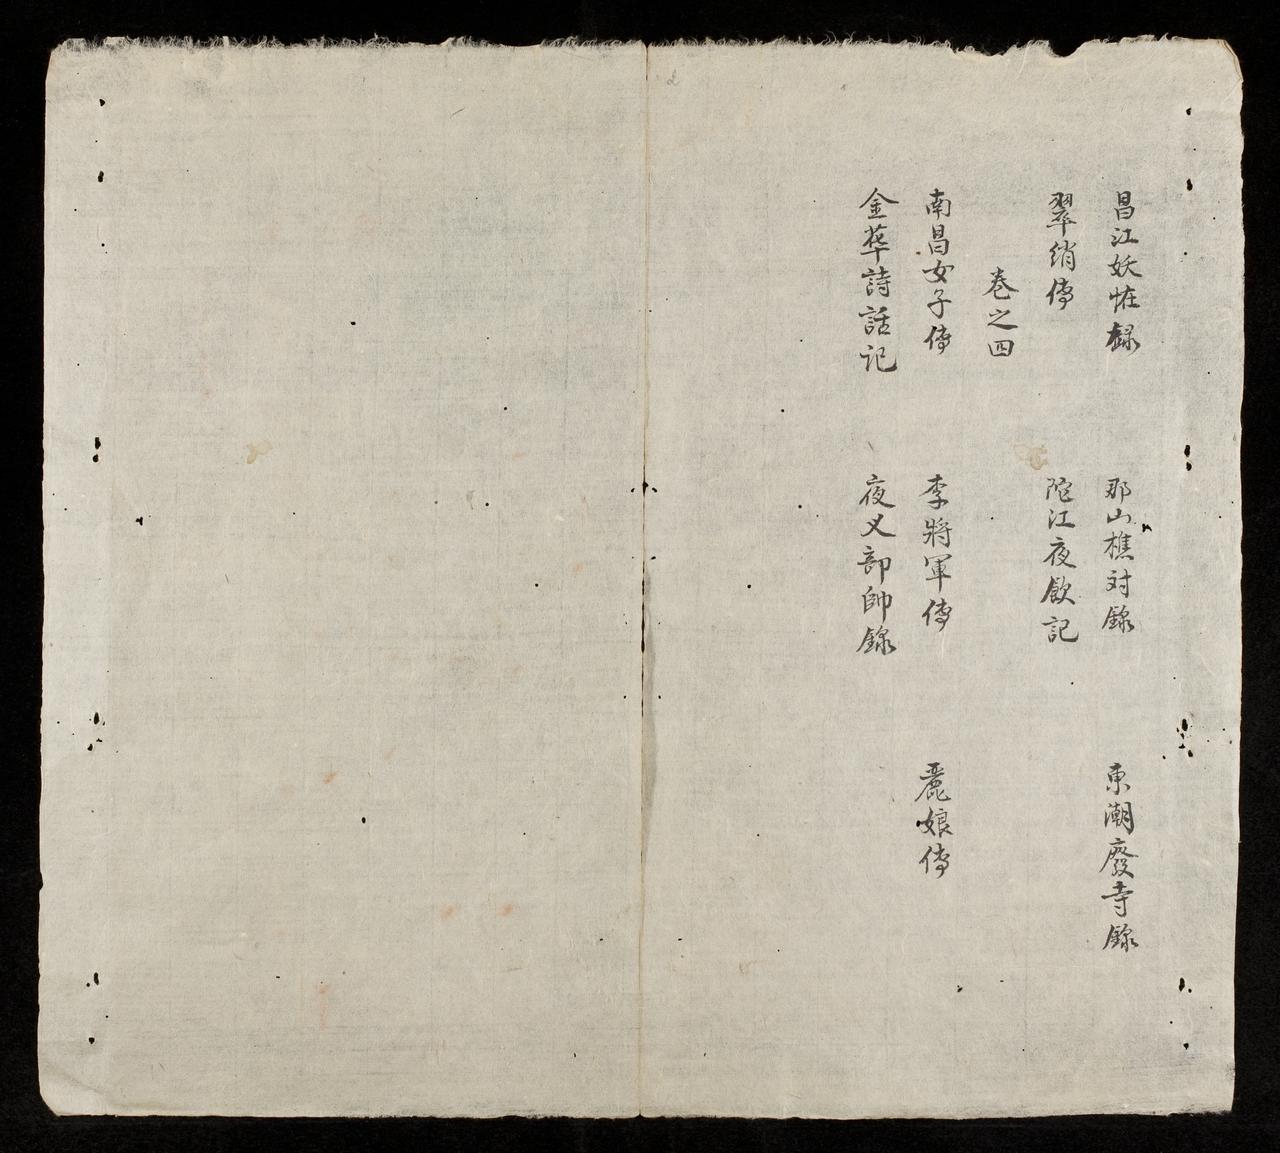 昌江妖恠録　那山樵対錄　東潮廢寺錄
翠綃傳　陀江夜飲記
卷之四
南昌女子傳　李將軍傳　麗娘傳
金華詩話记　夜叉部帥錄